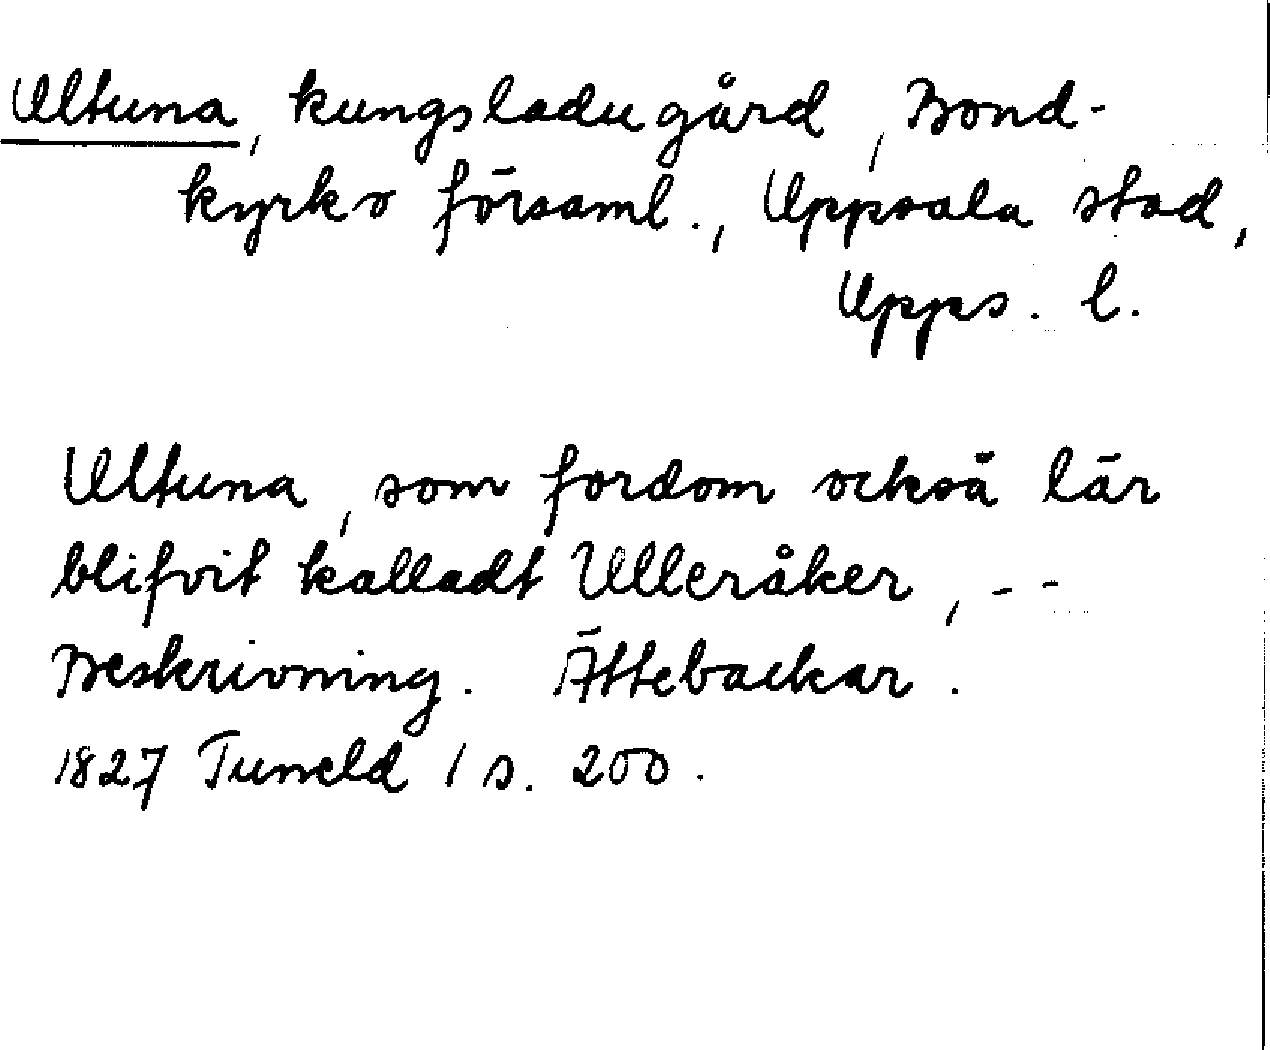 Ultuna, kungsladugård, Bond-
kyrko församl., Uppsala stad,
Upps. l.
Ultuna, som fordom också lär
blifvit kalladt Ulleråker, - -
Beskrivning. Ättebackar.
1827 Tuneld 1 s. 200.